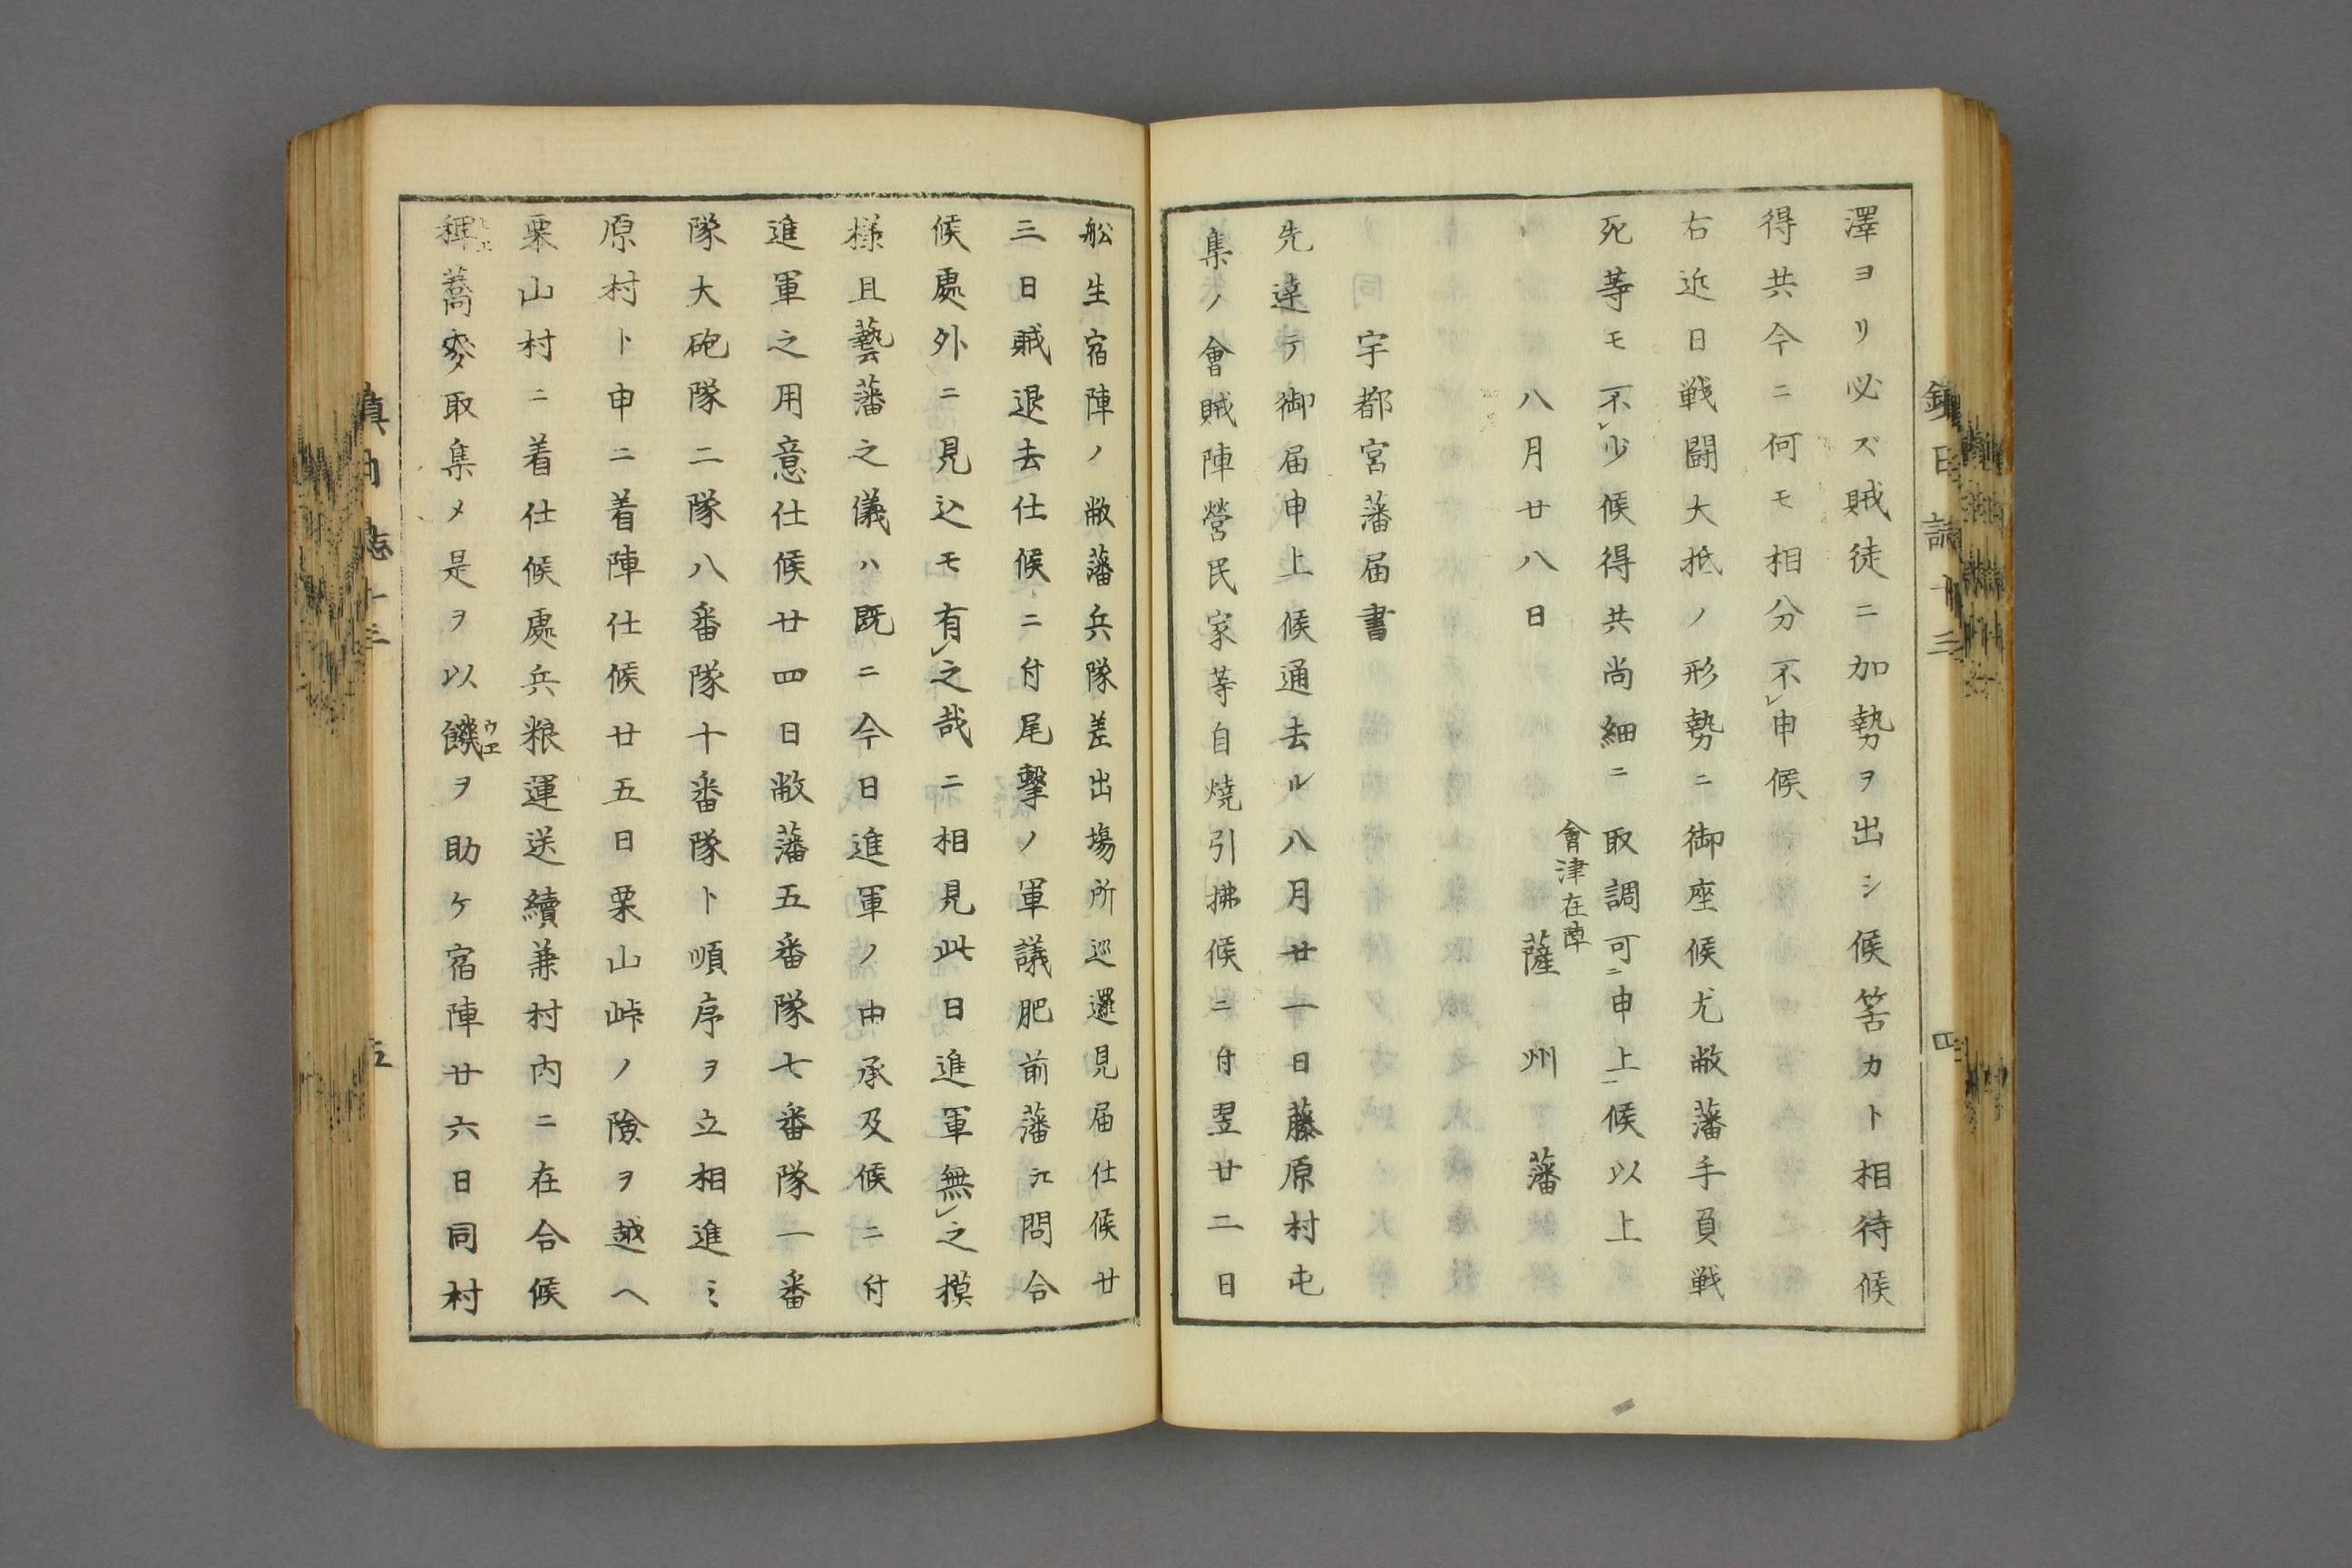 澤ヨリ必ズ賊徒ニ加勢ヲ出シ候筈カト相待候
得共今ニ何モ相分不レ申候
右近日戦闘大抵ノ形勢ニ御座候尤敝藩手負戦
死等モ不レ少候得共尚細ニ取調可ニ申上一候以上
會津在陣
八月廿八日 薩州藩
宇都宮藩届書
先達テ御届申上候通去ル八月廿一日藤原村屯
集ノ會賊陣營民家等自燒引拂候ニ付翌廿二日
舩生宿陣ノ敝藩兵隊差出場所巡邏見届仕候廿
三日賊退去仕候ニ付尾擊ノ軍議肥前藩江問合
候處外ニ見込モ有レ之哉ニ相見此日進軍無レ之摸
様且藝藩之儀ハ既ニ今日進軍ノ由承及候ニ付
進軍之用意仕候廿四日敝藩五番隊七番隊一番
隊大砲隊二隊八番隊十番隊ト順序ヲ立相進ミ
原村ト申ニ着陣仕候廿五日栗山峠ノ險ヲ越ヘ
栗山村ニ着仕候處兵粮運送續兼村内ニ在合候
稗蕎麥取集メ是ヲ以饑ウエヲ助ケ宿陣廿六日同村
鎮日誌十三
四
鎮日誌十三
五